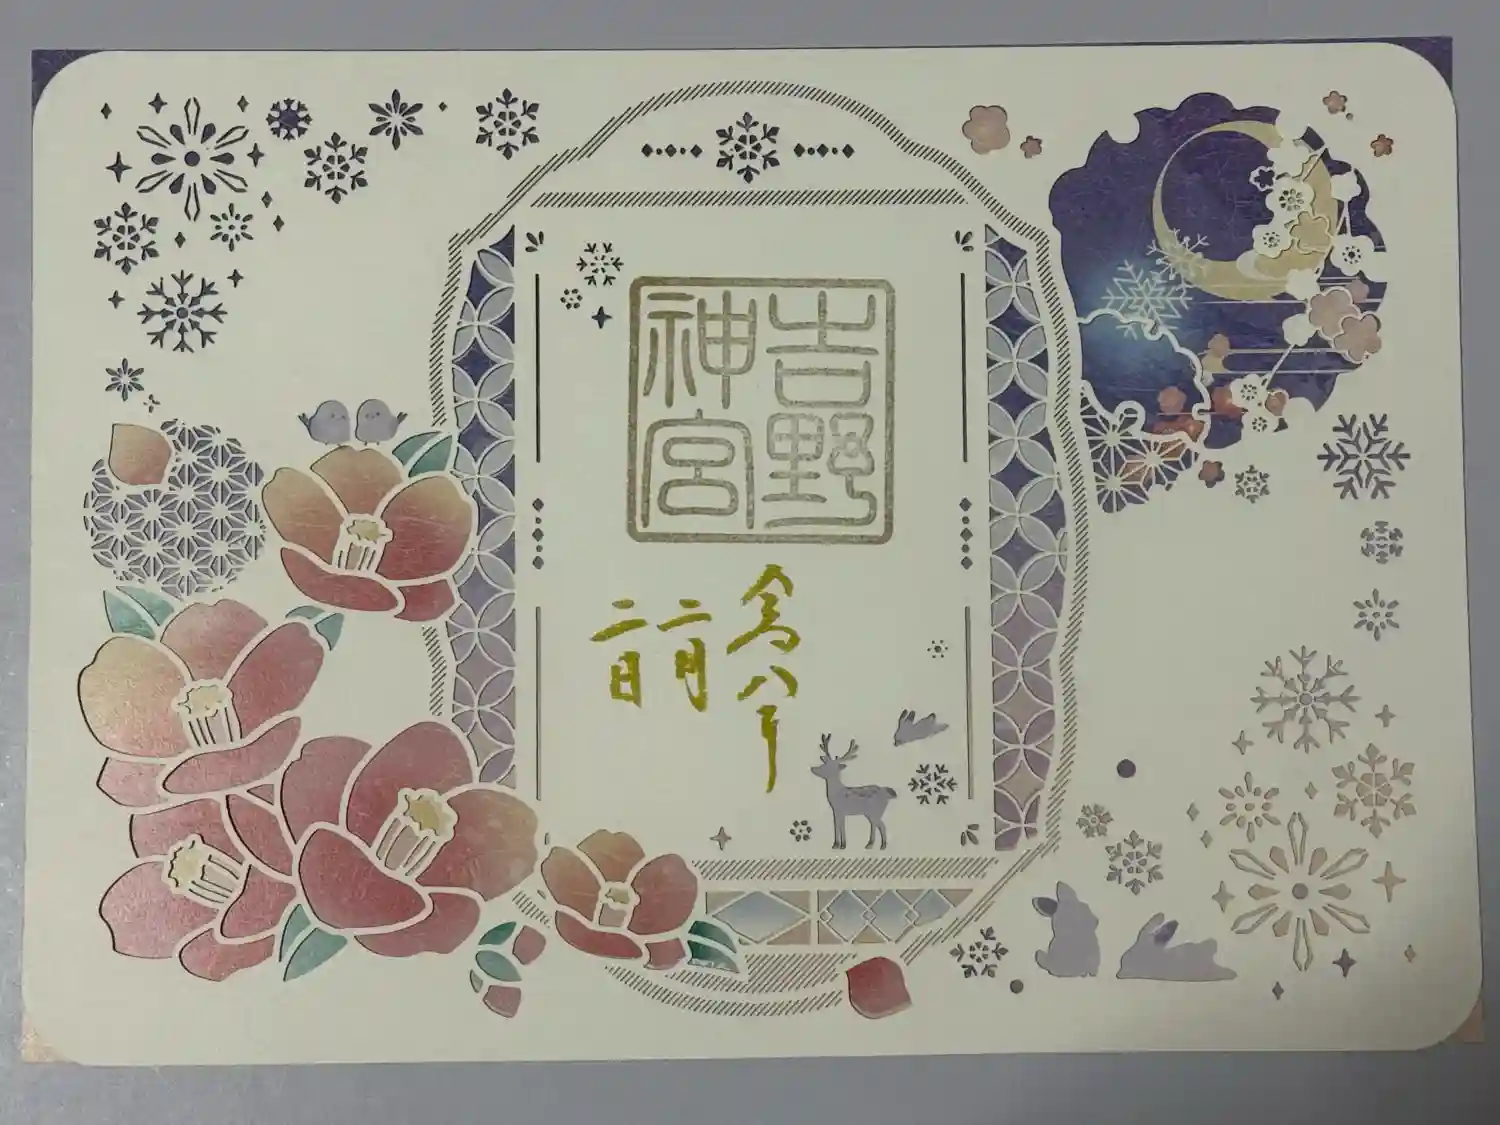 吉野
神宮
令八年
二月
二日